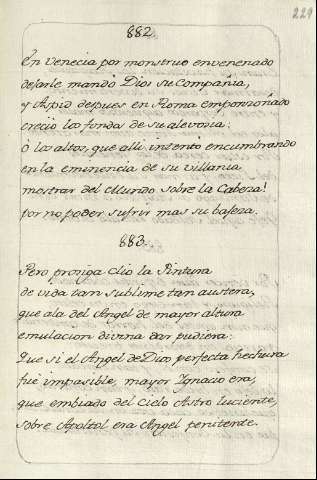 229
882.
En Venecia por monstruo envenenado
dejarle mandò Dios su Compañia,
y Aspid despues en Roma emponzoñado
creciò los fondos de su alevosia:
O los altos, que alli intentò encumbrando
en la eminencia de su villania
mostrar del Mundo sobre la Cabeza!
por no poder sufrir mas su bajeza.
883.
Pero prosiga Clio la Pintura
de vida tan sublime tan austera,
que ala del Angel de mayor altura
emulacion divina dar pudiera:
Que si el Angel de Dios perfecta hechura
fuè impasible, mayor Ignacio era,
que embiado del Cielo Astro luciente,
sobre Apostol era Angel penitente.